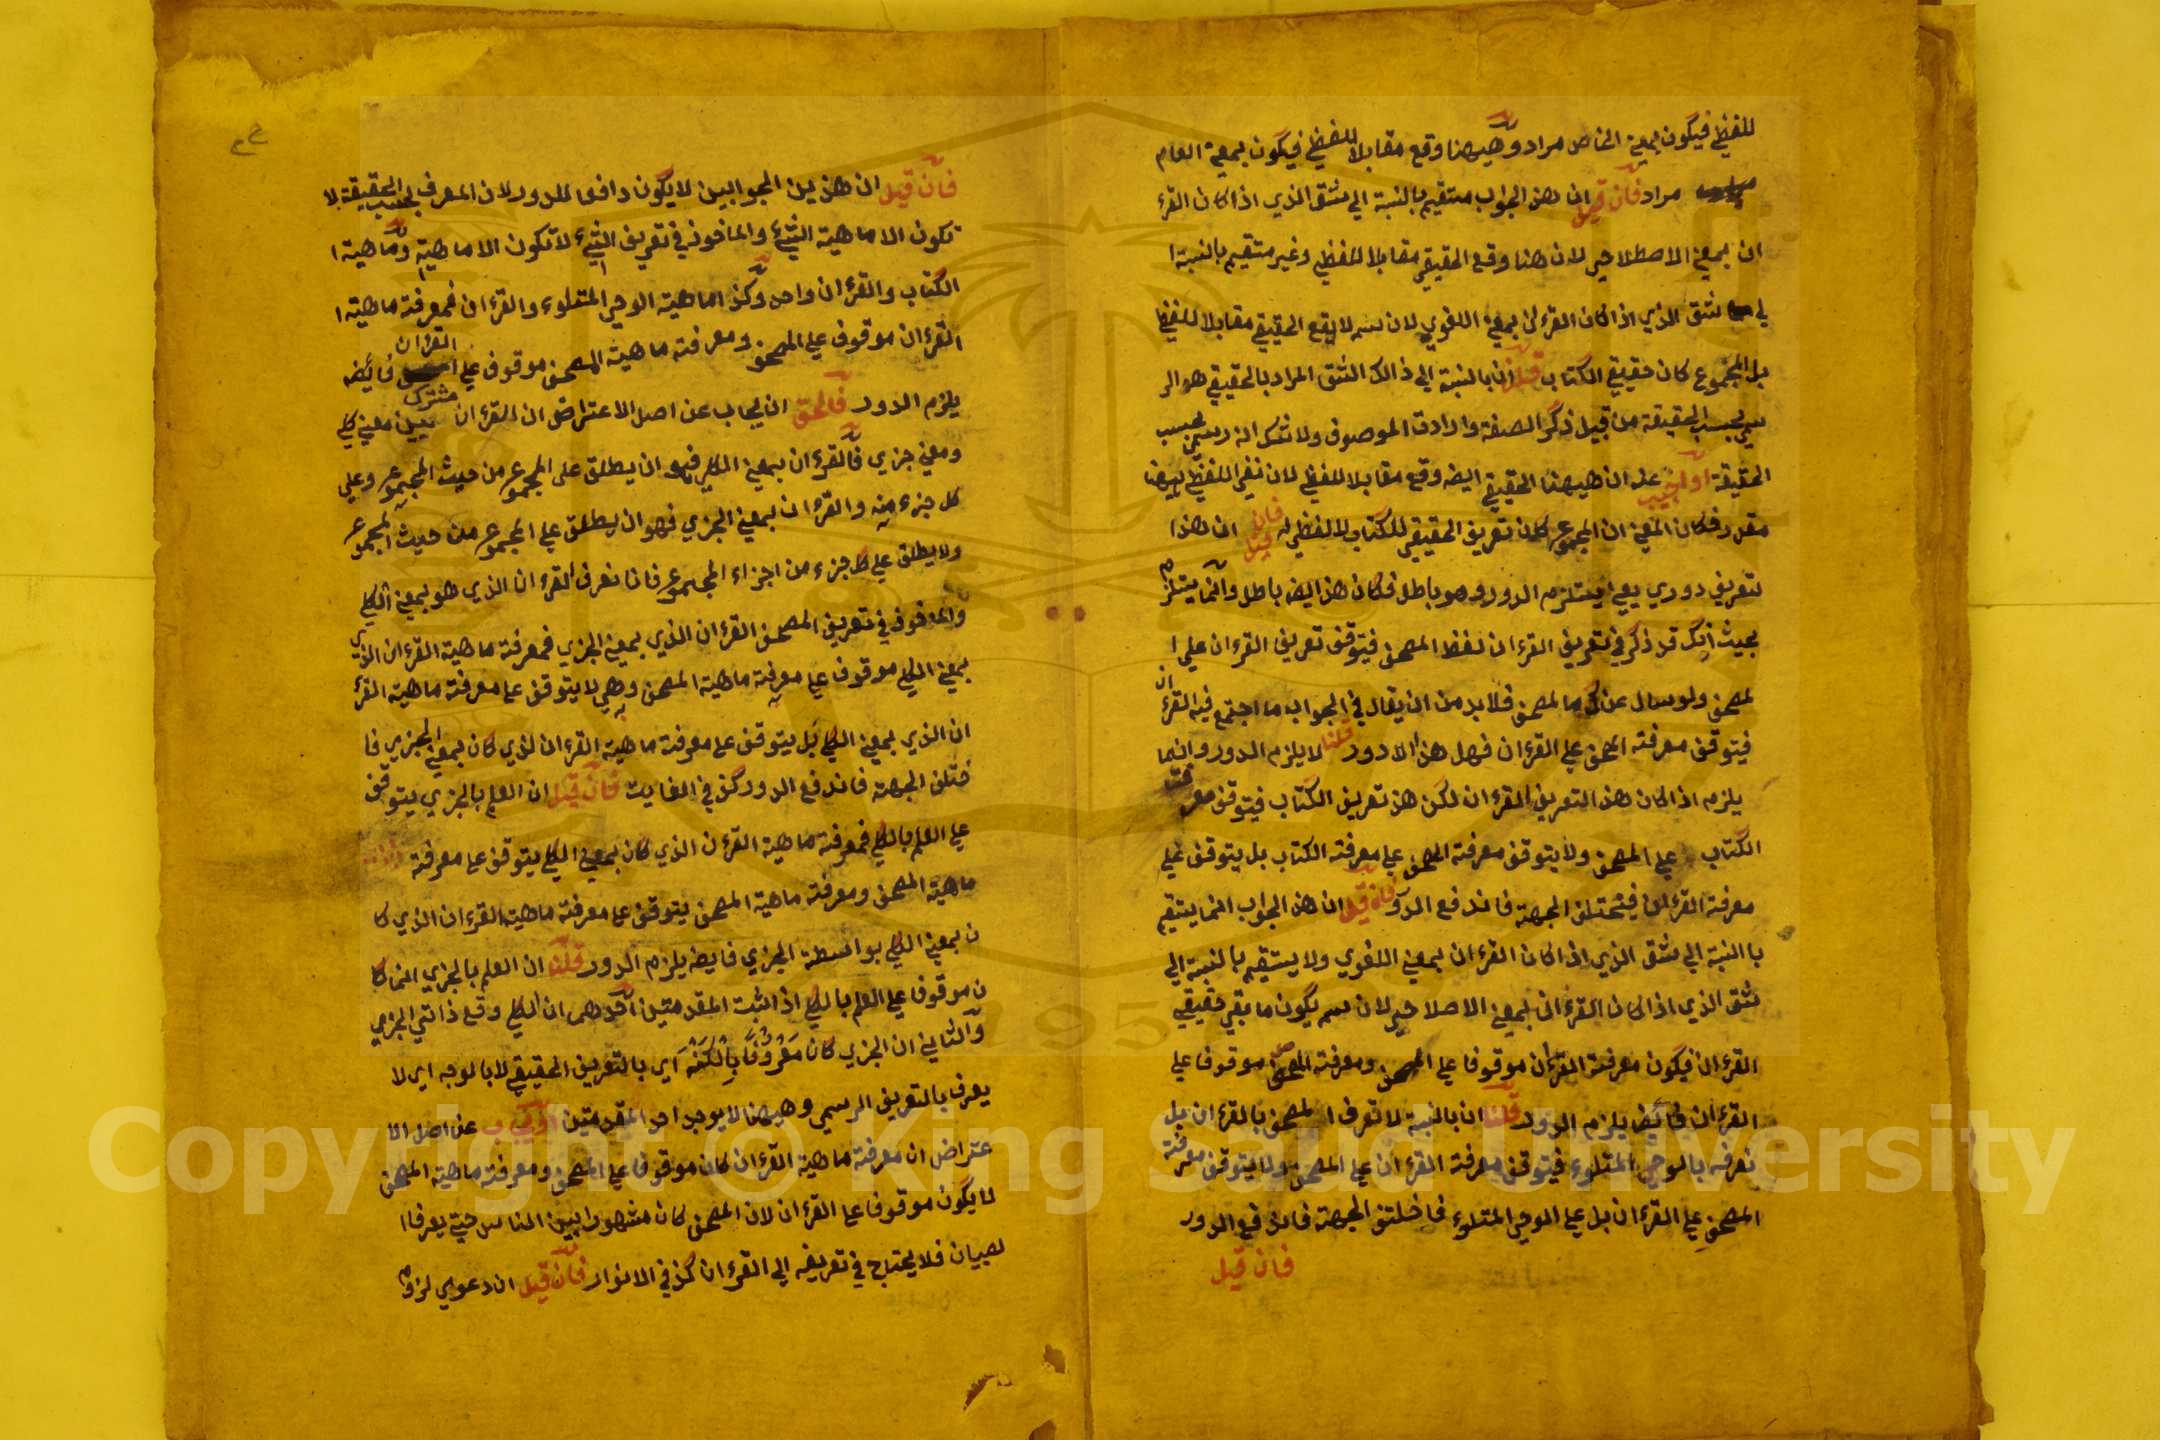 للفظي فيكون بمعنى الخاص مراد وههنا وقع مقابلا للفظي فيكون بمعنى العام
مراد فان قيل ان هذه الجواب مستقيم بالنسبة الي شق الذي اذا كان القرء
ان بمعنى الاصطلاحي لان هنا وقع الحقيقي مقابلا للفظي وغير مستقيم بالنسبة ا
لي شق الذي اذا كان القرءان بمعنى اللغوي لان لا يقع الحقيقي مقابلا للفظي
بل المجموع كان حقيقي الكتاب قلنا بالنسبة الي ذالك الشق المراد بالحقيقي هو الر
سمي بحسب الحقيقة من قبيل ذكر الصفة وارادت الموصوف ولا شك انه رسمي بحسب
الحقيقة او اجيب عنه ان ههنا الحقيقي ايضه وقع مقابلا للفظي لان نفي اللفظي ههنا
مقدر فكان المعنى ان المجموع كان تعريف الحقيقي للكتاب لا لفظي له فان قيل ان هذا
تعريف دوري يعني يستلزم الدور وهو باطل فكان هذا ايضه باطل وانما يستلزم
بحيث انك قد ذكر في تعريف القرءان لفظ المصحف فيتوقف تعريف القرءان علي ا
لمصحف ولو سال عنك ما المصحف فلابد من ان يقال في الجواب ما اجتمع فيه القرءان
فيتوقف معرفته المصحف علي القرءان فهل هذا الا دور قلنا لا يلزم الدور وانما
يلزم اذا كان هذه التعريف للقرءان لكن هذ تعريف الكتاب فيتوقف معرفت
الكتاب علي المصحف ولا يتوقف معرفة المصحف علي معرفته الكتاب بل يتوقف علي
معرفة القرءان فيختلف الجهة فاندفع الدور فان قيل ان هذه الجواب انما يستقيم
با النسبة الي شق الذي اذا كان القرءان بمعني اللغوي ولا يستقيم بالنسبة الي
شق الذي اذا كان القرءان بمعني الاصلاحي لان يكون ما بقي حقيقي
القرءان فيكون معرفة القرءان موقوفا علي المصحف ومعرفة المصحف موقوفا علي
القرءان فايضه يلزم الدور قلنا ان بالنسبة لا تعرف المصحف بالقرءان بل
نعرفه بالوحي المتلوء فيتوقف معرفة القرءان علي المصحف ولا يتوقف معرفة
المصحف علي القرءان بل علي الوحي المتلوء فاختلف الجهة فاندفع الدور
فان قيل
فان قيل ان هذين الجوابين لا يكون دافعا للدور لان المعرف بحسب الحقيقة لا
تكون الا ماهية الشيء والماخوذ في تعريف الشيء لا تكون الا ماهية وماهية ا
الكتاب والقرءان واحد وكذا ماهية الوحي المتلوء والقرءان فمعرفة ماهية ا
القرءان موقوف علي المصحف ومعرفة ماهية المصحف موقوف علي القرءان فايضه
يلزم الدور فالحق ان يجاب عن اصل الاعتراض ان القرءان مشترك بين معنى كلي
ومعني جزي فالقرءان بمعني الكلي فهو ان يطلق علي المجموع من حيث المجموع وعلي
كل جزء منه والقرءان بمعني الجزي فهو ان يطلق علي المجموع من حيث المجموع
ولا يطلق علي كل جزء من اجزاء المجموع فانا نعرف القرءان الذي هو بمعني الكلي
والماخوذ في تعريف المصحف القرءان الذي بمعني الجزي فمعرفة ماهية القرءان الذي
بمعني الكلي موقوف علي معرفة ماهية المصحف وهي لا يتوقف علي معرفة ماهية القرء
ان الذي بمعني الكلي بل يتوقف علي معرفة ماهية القرءان الذي كان بمعني الجزي فا
ختلف الجهة فاندفع الدور كذ في الغايت فان قيل ان العلم بالجزي يتوقف
علي العلم بالكلي فمعرفة ماهية القرءن الذي كان بمعني الكلي يتوقف علي معرفة
ماهية المصحف ومعرفة ماهية المصحف يتوقف علي معرفة ماهية القرءان الذي كا
ن بمعني الكلي بواسطة الجزي فايضه يلزم الدور قلنا ان العلم بالجزي انما كا
ن موقوفا علي العلم بالكلي اذا ثبت المقدمتين احدهما ان الكلي وقع ذاتي الجزي
والثاني ان الجزي كان معروفا بالكنه اي بالتعريف الحقيقي لا بالوجه اي لا
يعرف بالتعريف الرسمي وههنا لا يوجد احد المقدمتين او يجاب عن اصل الا
عتراض ان معرفة ماهية القرءان كان موقوفا علي المصحف ومعرفة ماهية المصحف
لا يكون موقوفا علي القرءان لان المصحف كان مشهورا بين الناس حتي يعرف ا
لصبيان فلا يحتاج في تعريفه الي القرءان كذ في الانوار فان قيل ان دعوي لزوم
Copyright © King Saud University
1957